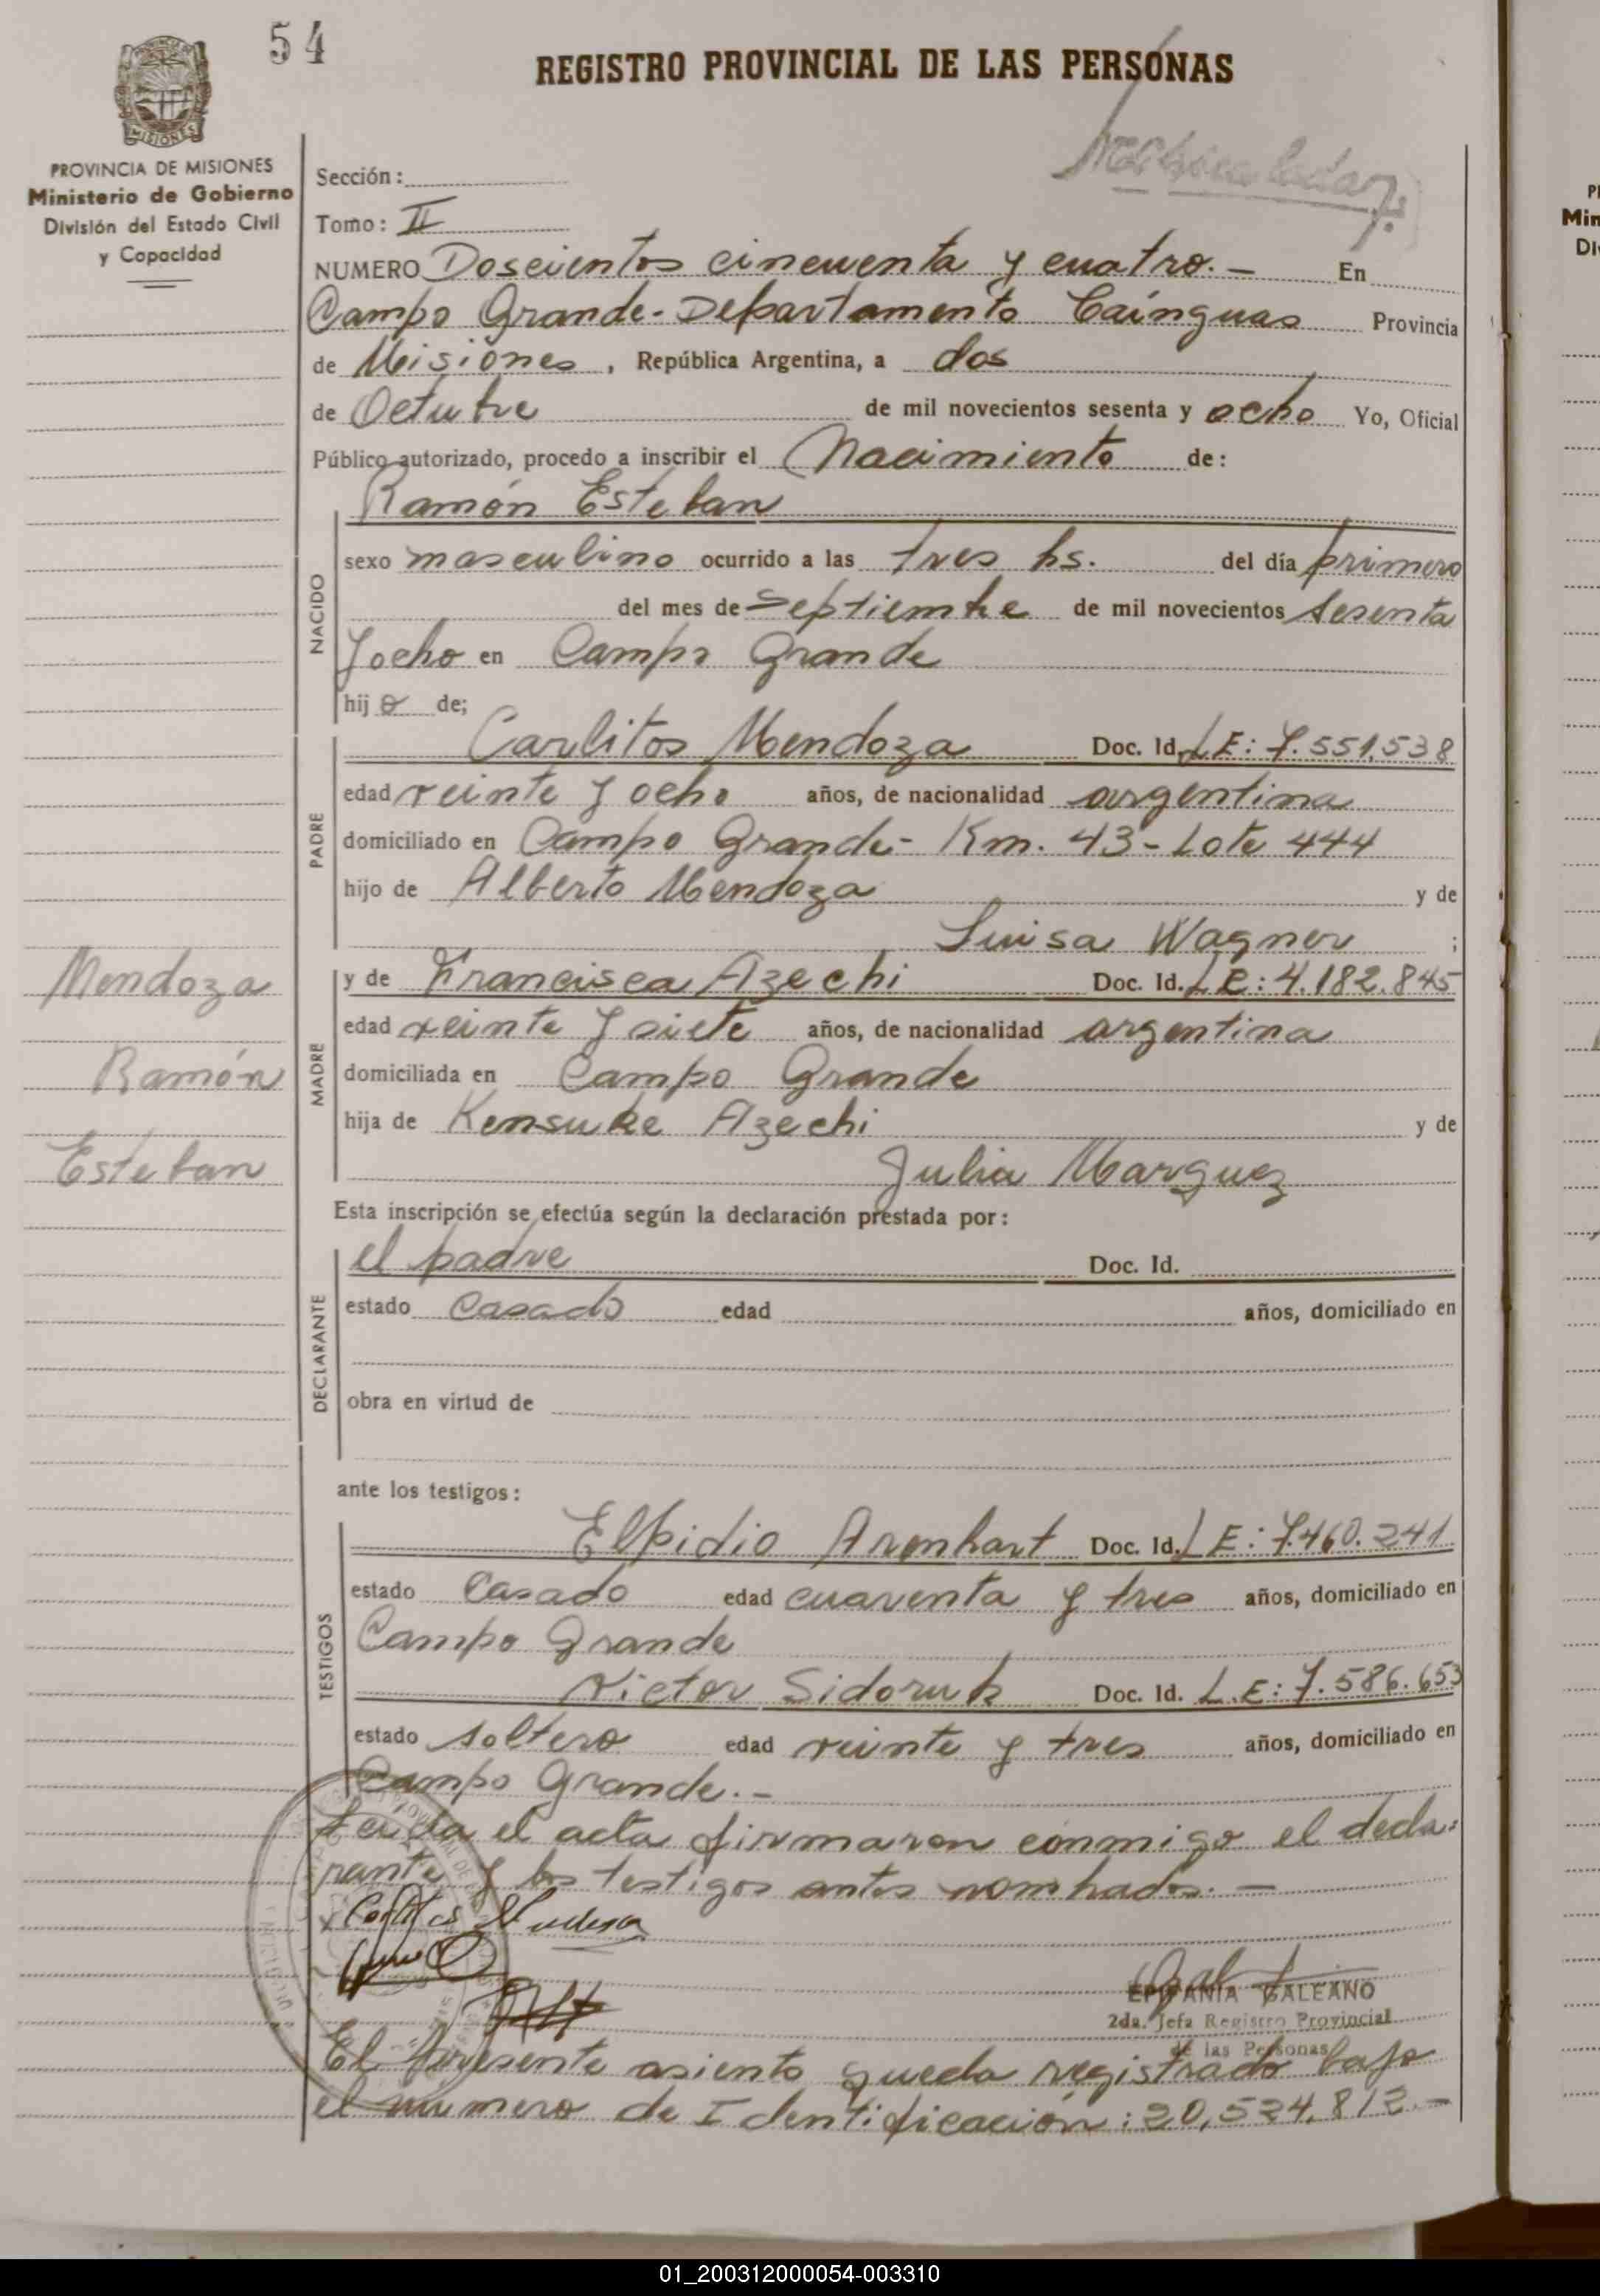 54
REGISTRO PROVINCIAL DE LAS PERSONAS
MISIONES
PROVINCIA DE MISIONES
Ministerio de Gobierno
División del Estado Civil
y Capacidad
Sección:
Tomo: II
NUMERO Doscientos cincuenta y cuatro.- En
Campo Grande-Departamento Caínguas Provincia
de Misiones, República Argentina, a dos
de Octubre de mil novecientos sesenta y ocho Yo, Oficial
Público autorizado, procedo a inscribir el Nacimiento de:
Ramón Esteban
NACIDO
sexo masculino ocurrido a las tres hs. del día primero
del mes de Septiembre de mil novecientos sesenta
y ocho en Campo Grande
hijo de;
PADRE
Carlitos Mendoza Doc. Id. LE: 7.551.538
edad veinte y ocho años, de nacionalidad argentina
domiciliado en Campo Grande- Km. 43-Lote 444
hijo de Alberto Mendoza y de
Luisa Wagner ;
Mendoza
Ramón
Esteban
MADRE
y de Francisca Azechi Doc. Id. LE: 4.182.845
edad veinte y siete años, de nacionalidad argentina
domiciliada en Campo Grande
hija de Kensuke Azechi y de
Julia Marquez
Esta inscripción se efectúa según la declaración prestada por:
DECLARANTE
el padre Doc. Id.
estado casado edad años, domiciliado en
obra en virtud de
ante los testigos:
TESTIGOS
Elpidio Arenhart Doc. Id. LE: 7.460.241
estado casado edad cuarenta y tres años, domiciliado en
Campo Grande
Victor Sidoruk Doc. Id. L.E: 7.586.653
estado soltero edad veinte y tres años, domiciliado en
Campo Grande.-
Leída el acta firmaron conmigo el decla-
rante y los testigos antes nombrados.-
EPIFANIA GALEANO
2da. Jefa Registro Provincial
de las Personas
El presente asiento queda registrado bajo
el número de Identificación: 20,534,812.-
01_200312000054-003310